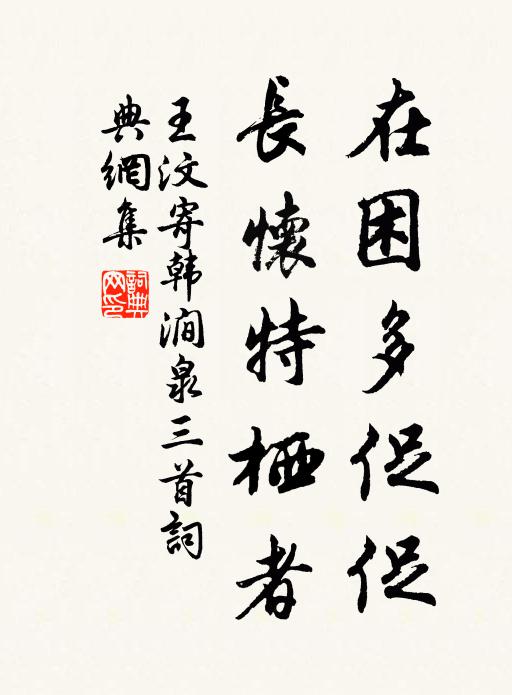 在困多促促
長懷特栖者
王汶寄韩澗泉三首詞
典網集
詞典
网印